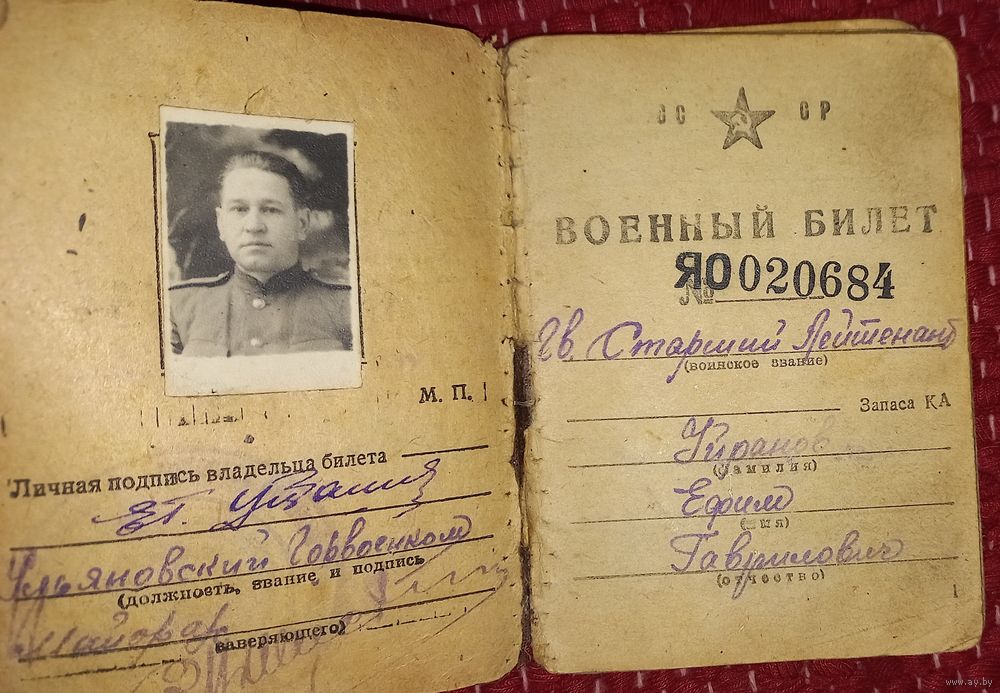 М. П.
Личная подпись владельца билета
Ульяновский Горвоенком
(должность, звание и подпись
Майор
заверяющего)
СС СР
ВОЕННЫЙ БИЛЕТ
№ ЯО 020684
Гв. Старший Лейтенант
(воинское звание)
Запаса КА
(фамилия)
Ефим
(имя)
Гаврилович
(отчество)
1
www.ay.by